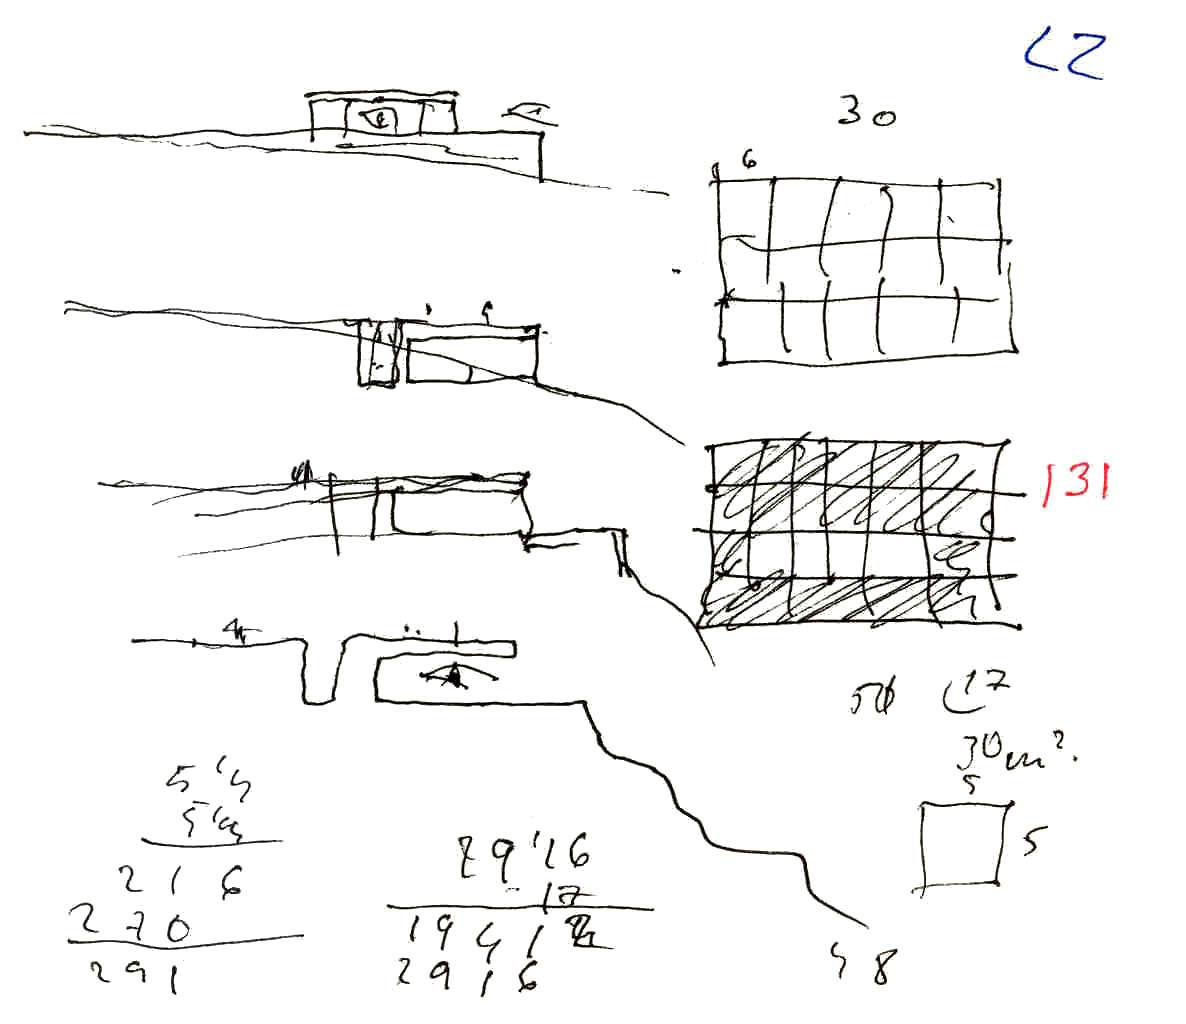 30
6
131
17
30 m².
5
5
5'4
5'4
2 1 6
2 7 0
2 9 1
29'16
17
2 9 1 6
48